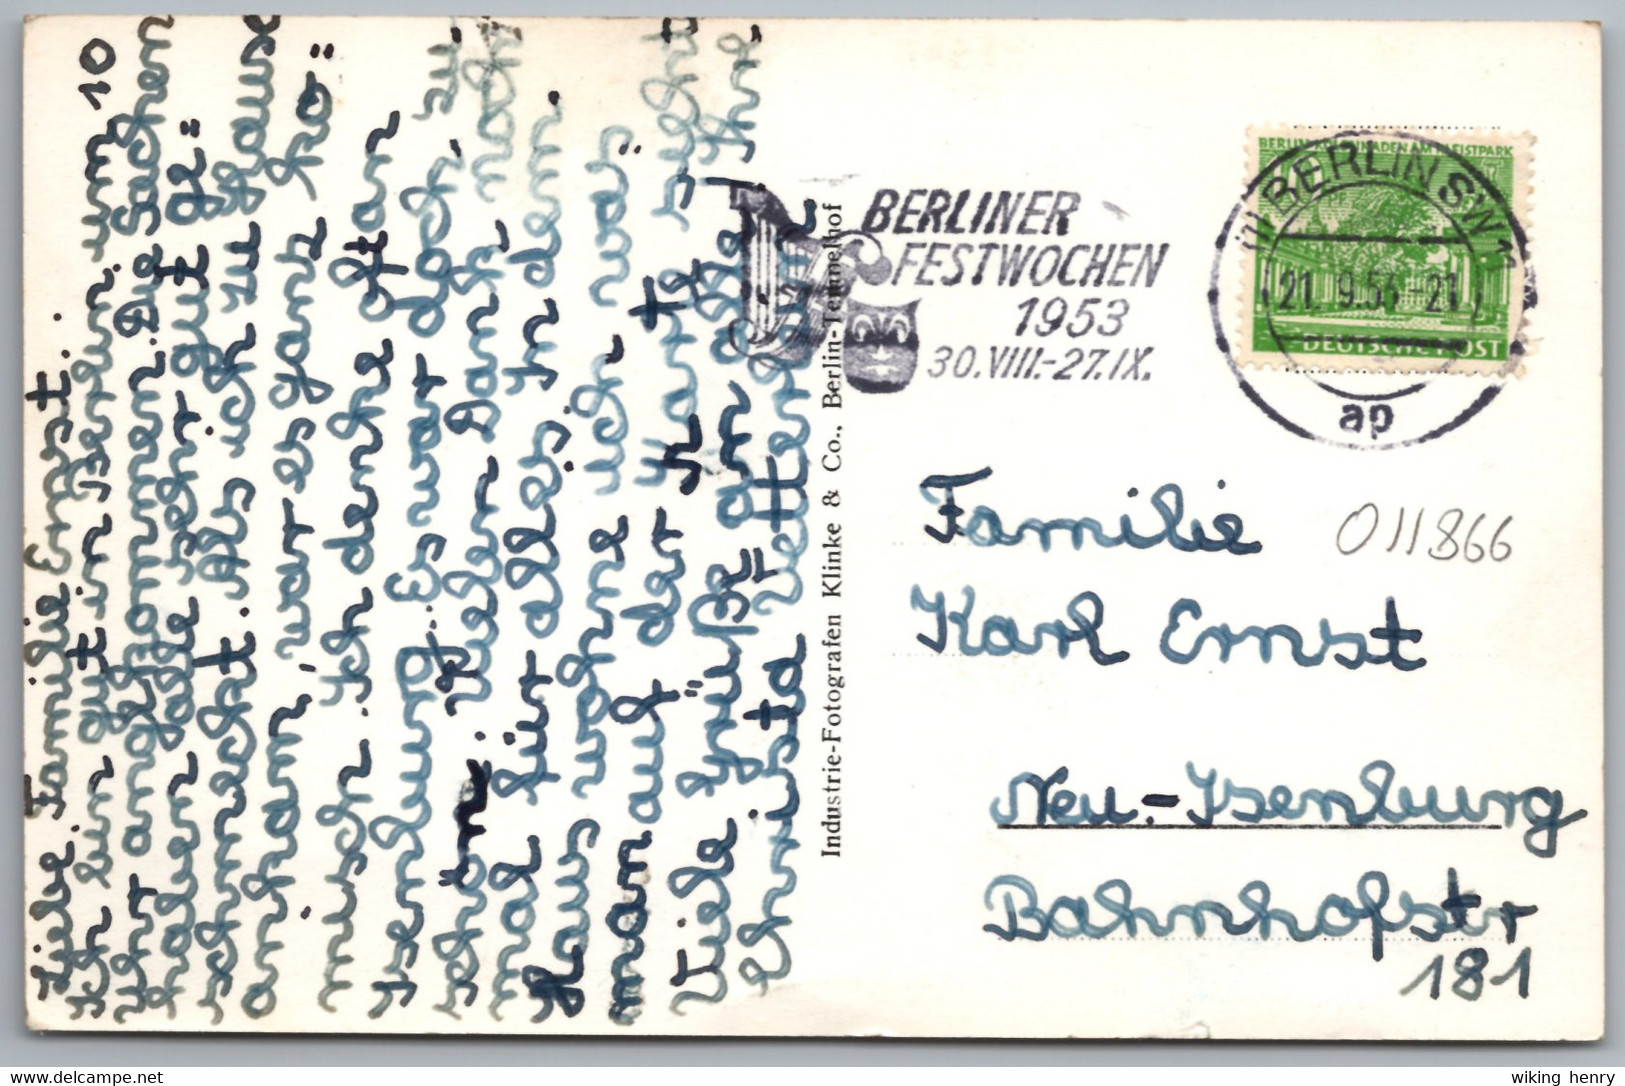 Liebe Familie Ernst.
Ich bin gut in Berlin um 10
Uhr angekommen. Die Sachen
haben alle sehr gut ge=
schmeckt. Als ich zu Hause
ankam, war es ganz ko=
misch. Ich denke oft an
Isenburg. Es war doch zu
schön. Vielen Dank noch
mal für alles. In dem
Haus wohne ich, was
man auf der Karte sieht
Viele Grüße an alle Ihre
Christa Vetter
Industrie-Fotografen Klinke & Co., Berlin-Tempelhof
BERLINER
FESTWOCHEN
1953
30.VIII.-27.IX.
BERLIN KOLONNADEN AM KLEISTPARK
DEUTSCHE POST
BERLIN SW 11
21. 9.53-21
ap
Familie
011866
Karl Ernst
Neu.-Isenburg
Bahnhofstr
181
wiking henry